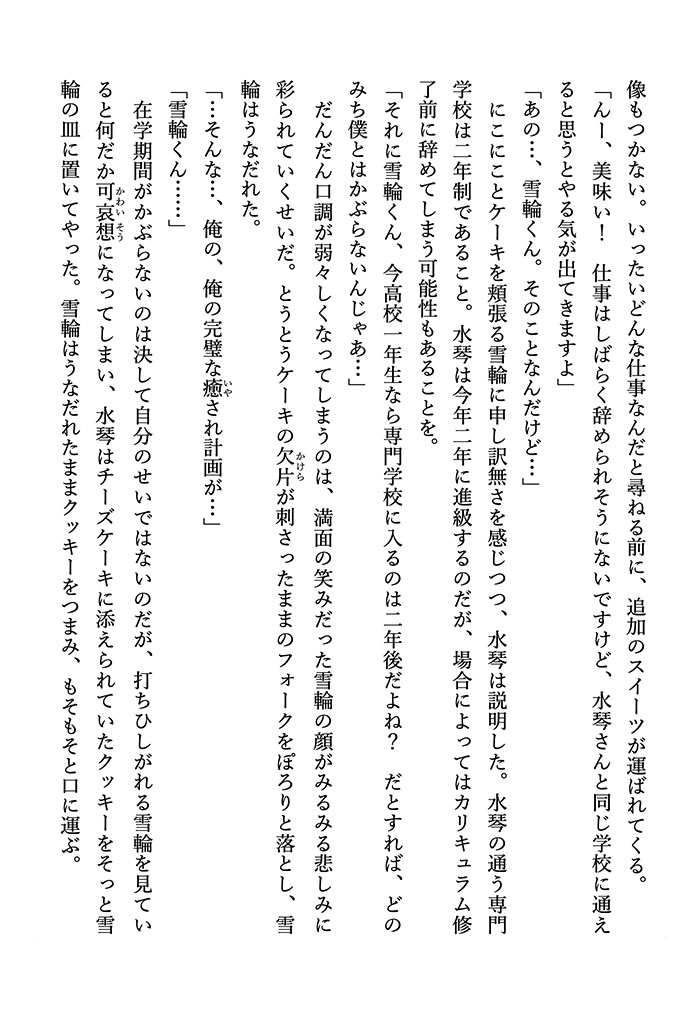 像もつかない。いったいどんな仕事なんだと尋ねる前に、追加のスイーツが運ばれてくる。
「んー、美味い！　仕事はしばらく辞められそうにないですけど、水琴さんと同じ学校に通え
ると思うとやる気が出てきますよ」
「あの…、雪輪くん。そのことなんだけど…」
　にこにことケーキを頬張る雪輪に申し訳無さを感じつつ、水琴は説明した。水琴の通う専門
学校は二年制であること。水琴は今年二年に進級するのだが、場合によってはカリキュラム修
了前に辞めてしまう可能性もあることを。
「それに雪輪くん、今高校一年生なら専門学校に入るのは二年後だよね？　だとすれば、どの
みち僕とはかぶらないんじゃあ…」
　だんだん口調が弱々しくなってしまうのは、満面の笑みだった雪輪の顔がみるみる悲しみに
彩られていくせいだ。とうとうケーキの欠片が刺さったままのフォークをぽろりと落とし、雪
輪はうなだれた。
「…そんな…、俺の、俺の完璧な癒され計画が…」
「雪輪くん……」
　在学期間がかぶらないのは決して自分のせいではないのだが、打ちひしがれる雪輪を見てい
ると何だか可哀想になってしまい、水琴はチーズケーキに添えられていたクッキーをそっと雪
輪の皿に置いてやった。雪輪はうなだれたままクッキーをつまみ、もそもそと口に運ぶ。